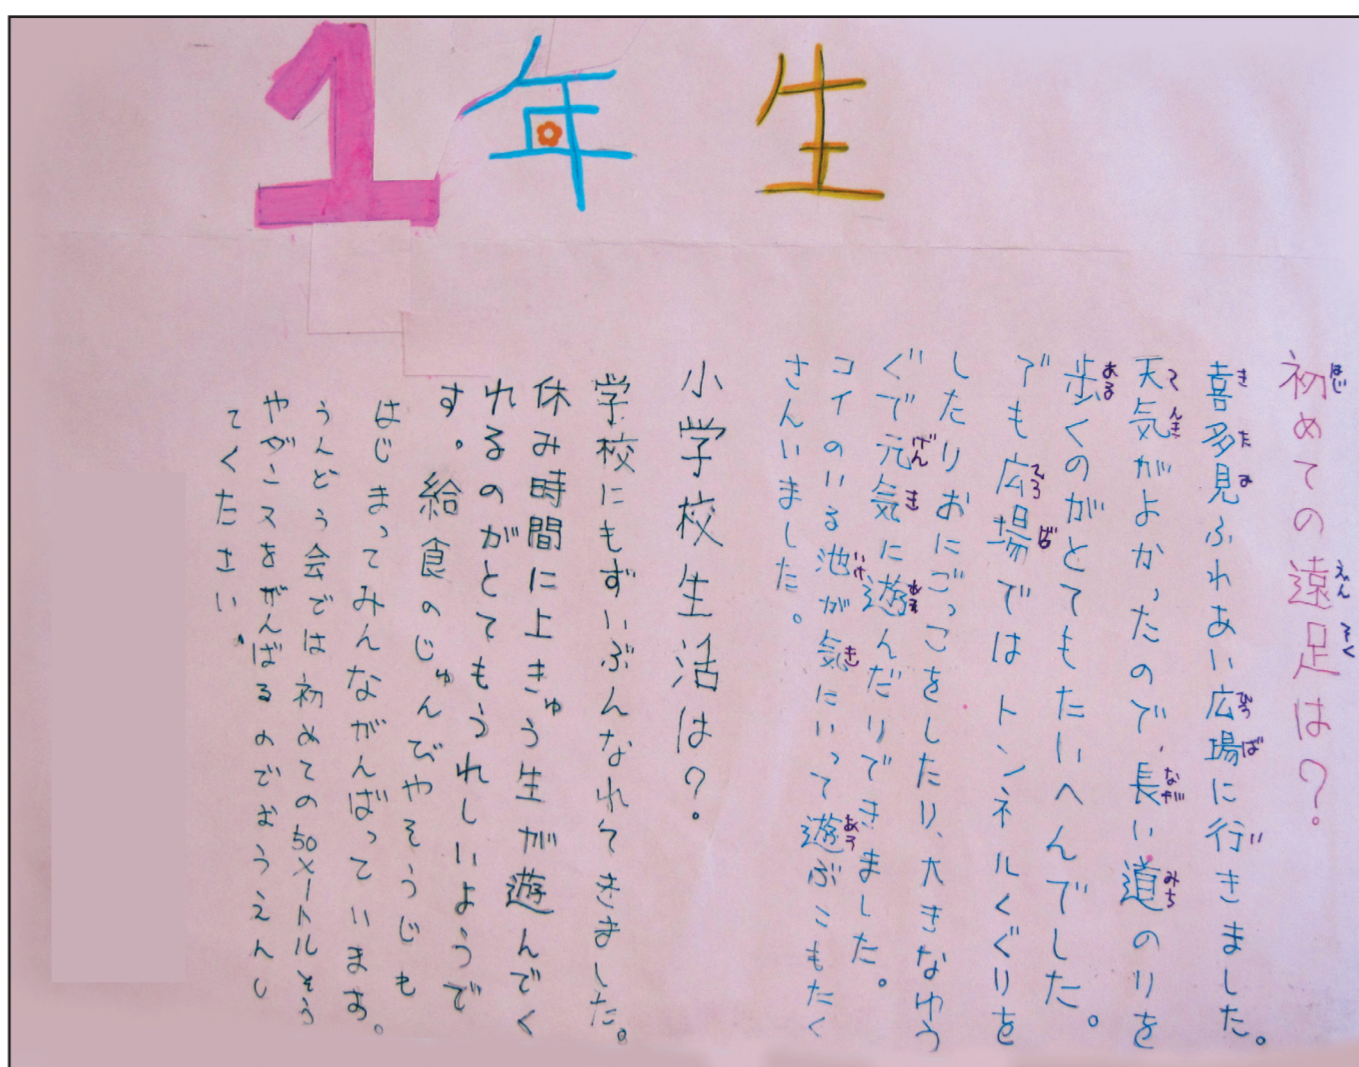 1年生
初めての遠足は？
喜多見ふれあい広場に行きました。
天気がよかったので、長い道のりを
歩くのがとてもたいへんでした。
でも広場ではトンネルくぐりを
したりおにごっこをしたり、大きなゆう
ぐで元気に遊んだりできました。
コイのいる池が気にいって遊ぶこもたく
さんいました。
小学校生活は？
学校にもずいぶんなれてきました。
休み時間に上きゅう生が遊んでく
れるのがとてもうれしいようで
す。給食のじゅんびやそうじも
はじまってみんながんばっています。
うんどう会では初めての50メートルそう
やダンスをがんばるのでおうえんし
てください。